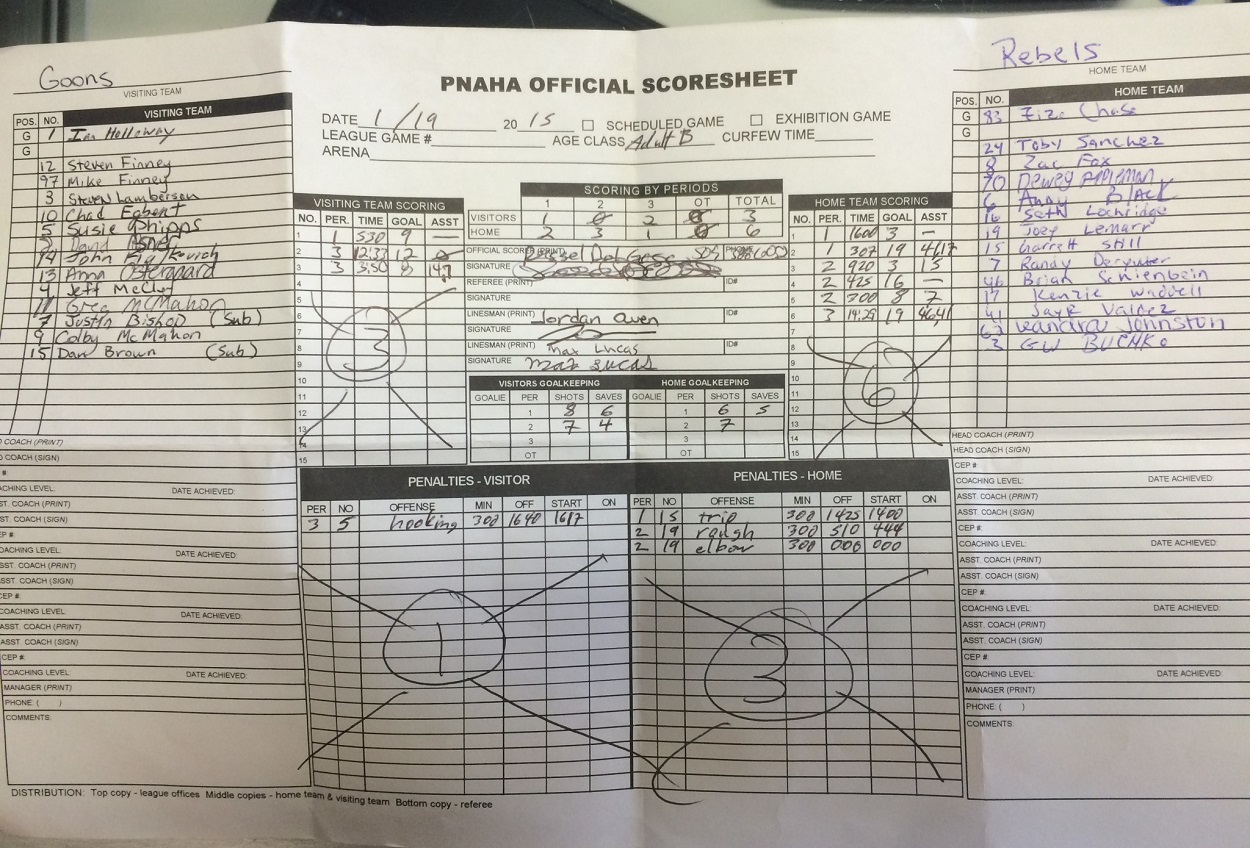 Goons
VISITING TEAM
VISITING TEAM
POS. NO.
G 1 Ian Holloway
G
12 Steven Finney
97 Mike Finney
3 Steven Lamberson
10 Chad Egbert
5 Susie Phipps
14 John
13 Anna Ostergaard
4 Jeff
11 Greg McMahon
7 Justin Bishop (Sub)
9 Colby McMahon
15 Dan Brown (Sub)
COACH (PRINT)
COACH (SIGN)
COACHING LEVEL: DATE ACHIEVED:
ASST. COACH (PRINT)
ASST. COACH (SIGN)
CEP #
COACHING LEVEL: DATE ACHIEVED:
ASST. COACH (PRINT)
ASST. COACH (SIGN)
CEP #:
COACHING LEVEL: DATE ACHIEVED:
ASST. COACH (PRINT)
ASST. COACH (SIGN)
CEP #:
COACHING LEVEL: DATE ACHIEVED:
MANAGER (PRINT)
PHONE: ( )
COMMENTS:
PNAHA OFFICIAL SCORESHEET
DATE 1/19 2015 SCHEDULED GAME EXHIBITION GAME
LEAGUE GAME # AGE CLASS Adult B CURFEW TIME
ARENA
VISITING TEAM SCORING
NO. PER. TIME GOAL ASST
1 1 530 9 —
2 3 12:33 12
3 3 3:50 8
4
5
6
7
8
9
10
11
12
13
14
15
3
SCORING BY PERIODS
1 2 3 OT TOTAL
VISITORS 1 0 2 0 3
HOME 2 3 1 0 6
OFFICIAL SCORER (PRINT)
SIGNATURE
REFEREE (PRINT) ID#
SIGNATURE
LINESMAN (PRINT) Jordan Owen ID#
SIGNATURE
LINESMAN (PRINT) Max Lucas ID#
SIGNATURE Max Lucas
VISITORS GOALKEEPING
GOALIE PER SHOTS SAVES
1 8 6
2 7 4
3
OT
HOME GOALKEEPING
GOALIE PER SHOTS SAVES
1 6 5
2 7
3
OT
HOME TEAM SCORING
NO. PER. TIME GOAL ASST
1 1 1600 3 —
2 1 307 19 4/17
3 2 920 3 15
4 2 425 16 —
5 2 300 8 7
6 3 14:29 19
7
8
9
10
11
12
13
14
15
6
PENALTIES - VISITOR
PER NO OFFENSE MIN OFF START ON
3 5 hooking 300 1640 1617
1
PENALTIES - HOME
PER NO OFFENSE MIN OFF START ON
1 15 trip 300 1425 1400
2 19 rough 300 510 444
2 19 elbow 300 000 000
3
Rebels
HOME TEAM
HOME TEAM
POS. NO.
G 83 Chase
G
24 Toby Sanchez
8 Zac Fox
70 Dewey
6 Andy Black
16 Seth Lochridge
19 Joey Lemarr
15 Garrett Still
7 Randy Deryuter
46 Brian Schienbein
17 Kenzie Waddell
41 Jayk Valdez
Kandra Johnston
3 GW BUCHKO
HEAD COACH (PRINT)
HEAD COACH (SIGN)
CEP #:
COACHING LEVEL: DATE ACHIEVED:
ASST. COACH (PRINT)
ASST. COACH (SIGN)
CEP #:
COACHING LEVEL: DATE ACHIEVED:
ASST. COACH (PRINT)
ASST. COACH (SIGN)
CEP #:
COACHING LEVEL: DATE ACHIEVED:
ASST. COACH (PRINT)
ASST. COACH (SIGN)
CEP #:
COACHING LEVEL: DATE ACHIEVED:
MANAGER (PRINT)
PHONE: ( )
COMMENTS:
DISTRIBUTION: Top copy - league offices Middle copies - home team & visiting team Bottom copy - referee